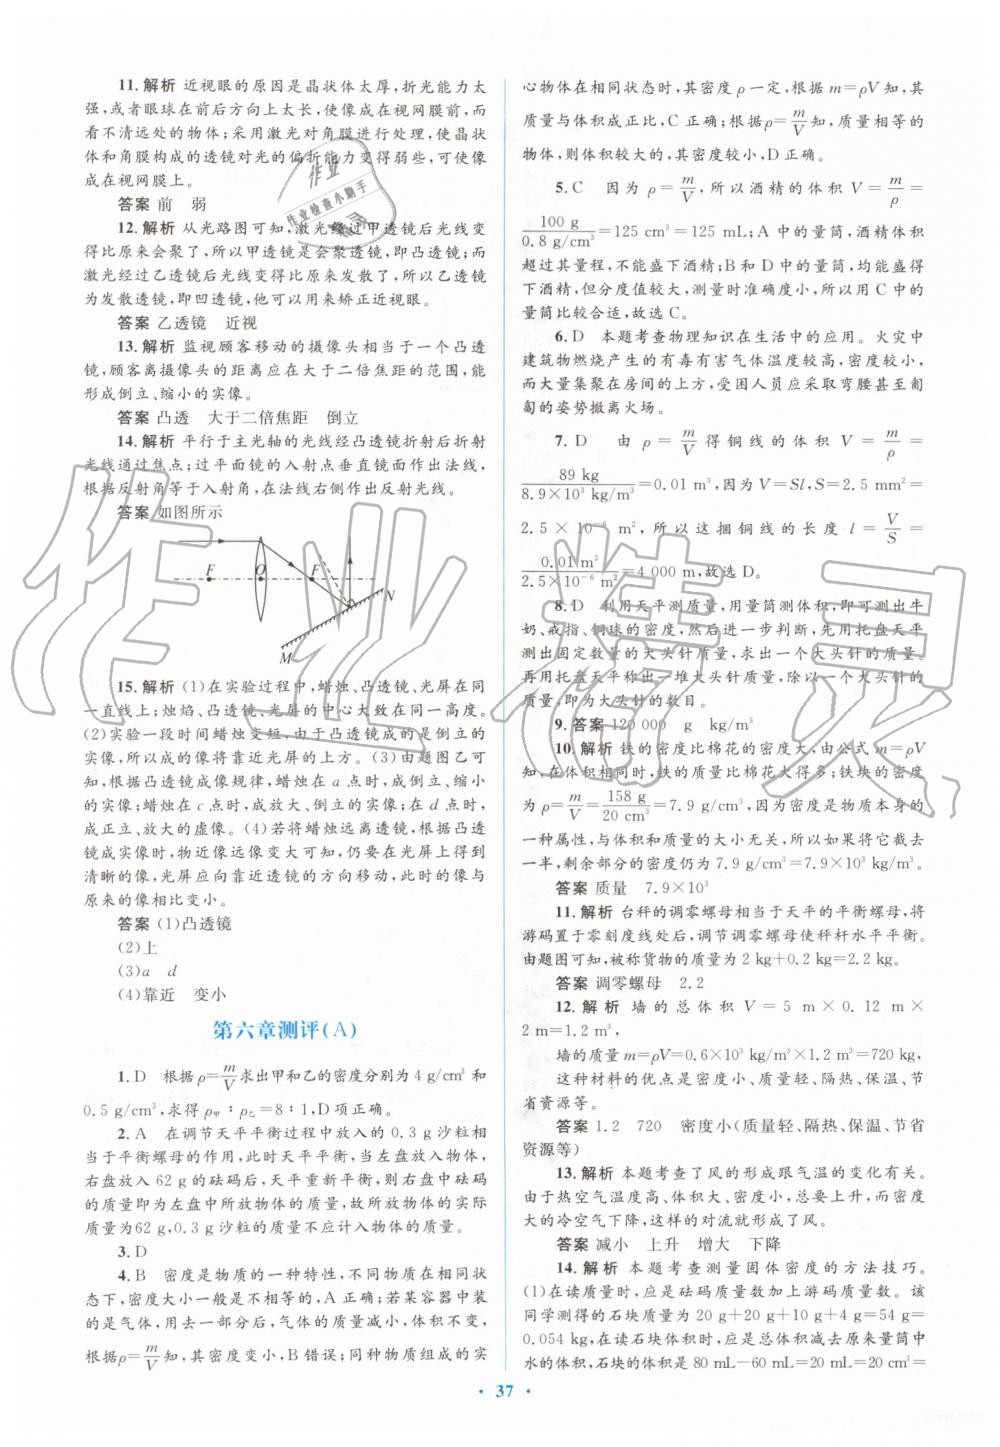 11. 解析 近视眼的原因是晶状体太厚,折光能力太
强,或者眼球在前后方向上太长,使像成在视网膜前,而
看不清远处的物体;采用激光对角膜进行处理,使晶状
体和角膜构成的透镜对光的偏折能力变得弱些,可使像
成在视网膜上。
答案 前 弱
12. 解析 从光路图可知,激光经过甲透镜后光线变
得比原来会聚了,所以甲透镜是会聚透镜,即凸透镜;而
激光经过乙透镜后光线变得比原来发散了,所以乙透镜
为发散透镜,即凹透镜,他可以用来矫正近视眼。
答案 乙透镜 近视
13. 解析 监视顾客移动的摄像头相当于一个凸透
镜,顾客离摄像头的距离应在大于二倍焦距的范围,能
形成倒立、缩小的实像。
答案 凸透 大于二倍焦距 倒立
14. 解析 平行于主光轴的光线经凸透镜折射后折射
光线通过焦点;过平面镜的入射点垂直镜面作出法线,
根据反射角等于入射角,在法线右侧作出反射光线。
答案 如图所示
F O F N
M
15. 解析 (1)在实验过程中,蜡烛、凸透镜、光屏在同
一直线上;烛焰、凸透镜、光屏的中心大致在同一高度。
(2)实验一段时间蜡烛变短,由于凸透镜成的是倒立的
实像,所以成的像将靠近光屏的上方。(3)由题图乙可
知,根据凸透镜成像规律,蜡烛在a点时,成倒立、缩小
的实像;蜡烛在c点时,成放大、倒立的实像;在d点时,
成正立、放大的虚像。(4)若将蜡烛远离透镜,根据凸透
镜成实像时,物近像远像变大可知,仍要在光屏上得到
清晰的像,光屏应向靠近透镜的方向移动,此时的像与
原来的像相比变小。
答案 (1)凸透镜
(2)上
(3)a d
(4)靠近 变小
第六章测评(A)
1. D 根据ρ=m/V求出甲和乙的密度分别为4 g/cm³和
0.5 g/cm³,求得ρ甲∶ρ乙=8∶1,D项正确。
2. A 在调节天平平衡过程中放入的0.3 g沙粒相
当于平衡螺母的作用,此时天平平衡,当左盘放入物体,
右盘放入62 g的砝码后,天平重新平衡,则右盘中砝码
的质量即为左盘中所放物体的质量,故所放物体的实际
质量为62 g,0.3 g沙粒的质量不应计入物体的质量。
3. D
4. B 密度是物质的一种特性,不同物质在相同状
态下,密度大小一般是不相等的,A正确;若某容器中装
的是气体,用去一部分后,气体的质量减小,体积不变,
根据ρ=m/V知,其密度变小,B错误;同种物质组成的实
心物体在相同状态时,其密度ρ一定,根据m=ρV知,其
质量与体积成正比,C正确;根据ρ=m/V知,质量相等的
物体,则体积较大的,其密度较小,D正确。
5. C 因为ρ=m/V,所以酒精的体积V=m/ρ=
100 g/0.8 g/cm³=125 cm³=125 mL;A中的量筒,酒精体积
超过其量程,不能盛下酒精;B和D中的量筒,均能盛得
下,但分度值较大,测量时准确度小,所以用C中的
量筒比较合适,故选C。
6. D 本题考查物理知识在生活中的应用。火灾中
建筑物燃烧产生的有毒有害气体温度较高,密度较小,
而大量集聚在房间的上方,受困人员应采取弯腰甚至匍
匐的姿势撤离火场。
7. D 由ρ=m/V得铜线的体积V=m/ρ=
89 kg/8.9×10³ kg/m³=0.01 m³,因为V=Sl,S=2.5 mm²=
2.5×10⁻⁶ m²,所以这捆铜线的长度l=V/S=
0.01 m³/2.5×10⁻⁶ m²=4 000 m,故选D。
8. D 利用天平测质量,用量筒测体积,即可测出牛
奶、戒指、铜球的密度,然后进一步判断,先用托盘天平
测出固定数量的大头针质量,求出一个大头针的质量。
再用托盘天平称出一堆大头针质量,除以一个大头针的
质量,即为大头针的数目。
9. 答案 120 000 g kg/m³
10. 解析 铁的密度比棉花的密度大,由公式m=ρV
知,在体积相同时,铁的质量比棉花大得多;铁块的密度
为ρ=m/V=158 g/20 cm³=7.9 g/cm³,因为密度是物质本身的
一种属性,与体积和质量的大小无关,所以如果将它截去
一半,剩余部分的密度仍为7.9 g/cm³=7.9×10³ kg/m³。
答案 质量 7.9×10³
11. 解析 台秤的调零螺母相当于天平的平衡螺母,将
游码置于零刻度线处后,调节调零螺母使秤杆水平平衡。
由题图可知,被称货物的质量为2 kg+0.2 kg=2.2 kg。
答案 调零螺母 2.2
12. 解析 墙的总体积V=5 m×0.12 m×
2 m=1.2 m³,
墙的质量m=ρV=0.6×10³ kg/m³×1.2 m³=720 kg,
这种材料的优点是密度小、质量轻、隔热、保温、节
省资源等。
答案 1.2 720 密度小(质量轻、隔热、保温、节省
资源等)
13. 解析 本题考查了风的形成跟气温的变化有关。
由于热空气温度高、体积大、密度小,总要上升,而密度
大的冷空气下降,这样的对流就形成了风。
答案 减小 上升 增大 下降
14. 解析 本题考查测量固体密度的方法技巧。
(1)在读质量时,应是砝码质量数加上游码质量数。该
同学测得的石块质量为20 g+20 g+10 g+4 g=54 g=
0.054 kg,在读石块体积时,应是总体积减去原来量筒中
水的体积,石块的体积是80 mL-60 mL=20 mL=20 cm³=
· 37 ·
作业精灵
作业
作业检查小助手